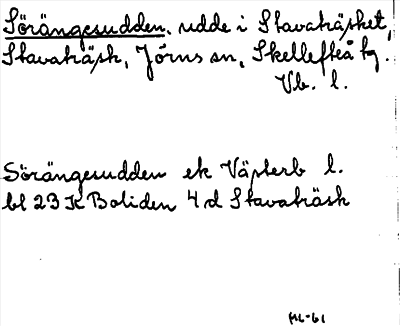 Sörängesudden, udde i Stavaträsket,
Stavaträsk, Jörns sn, Skellefteå tg.
Vb. l.
Sörängesudden ek Västerb l.
bl 23 K Boliden 4 d Stavaträsk
HL-61